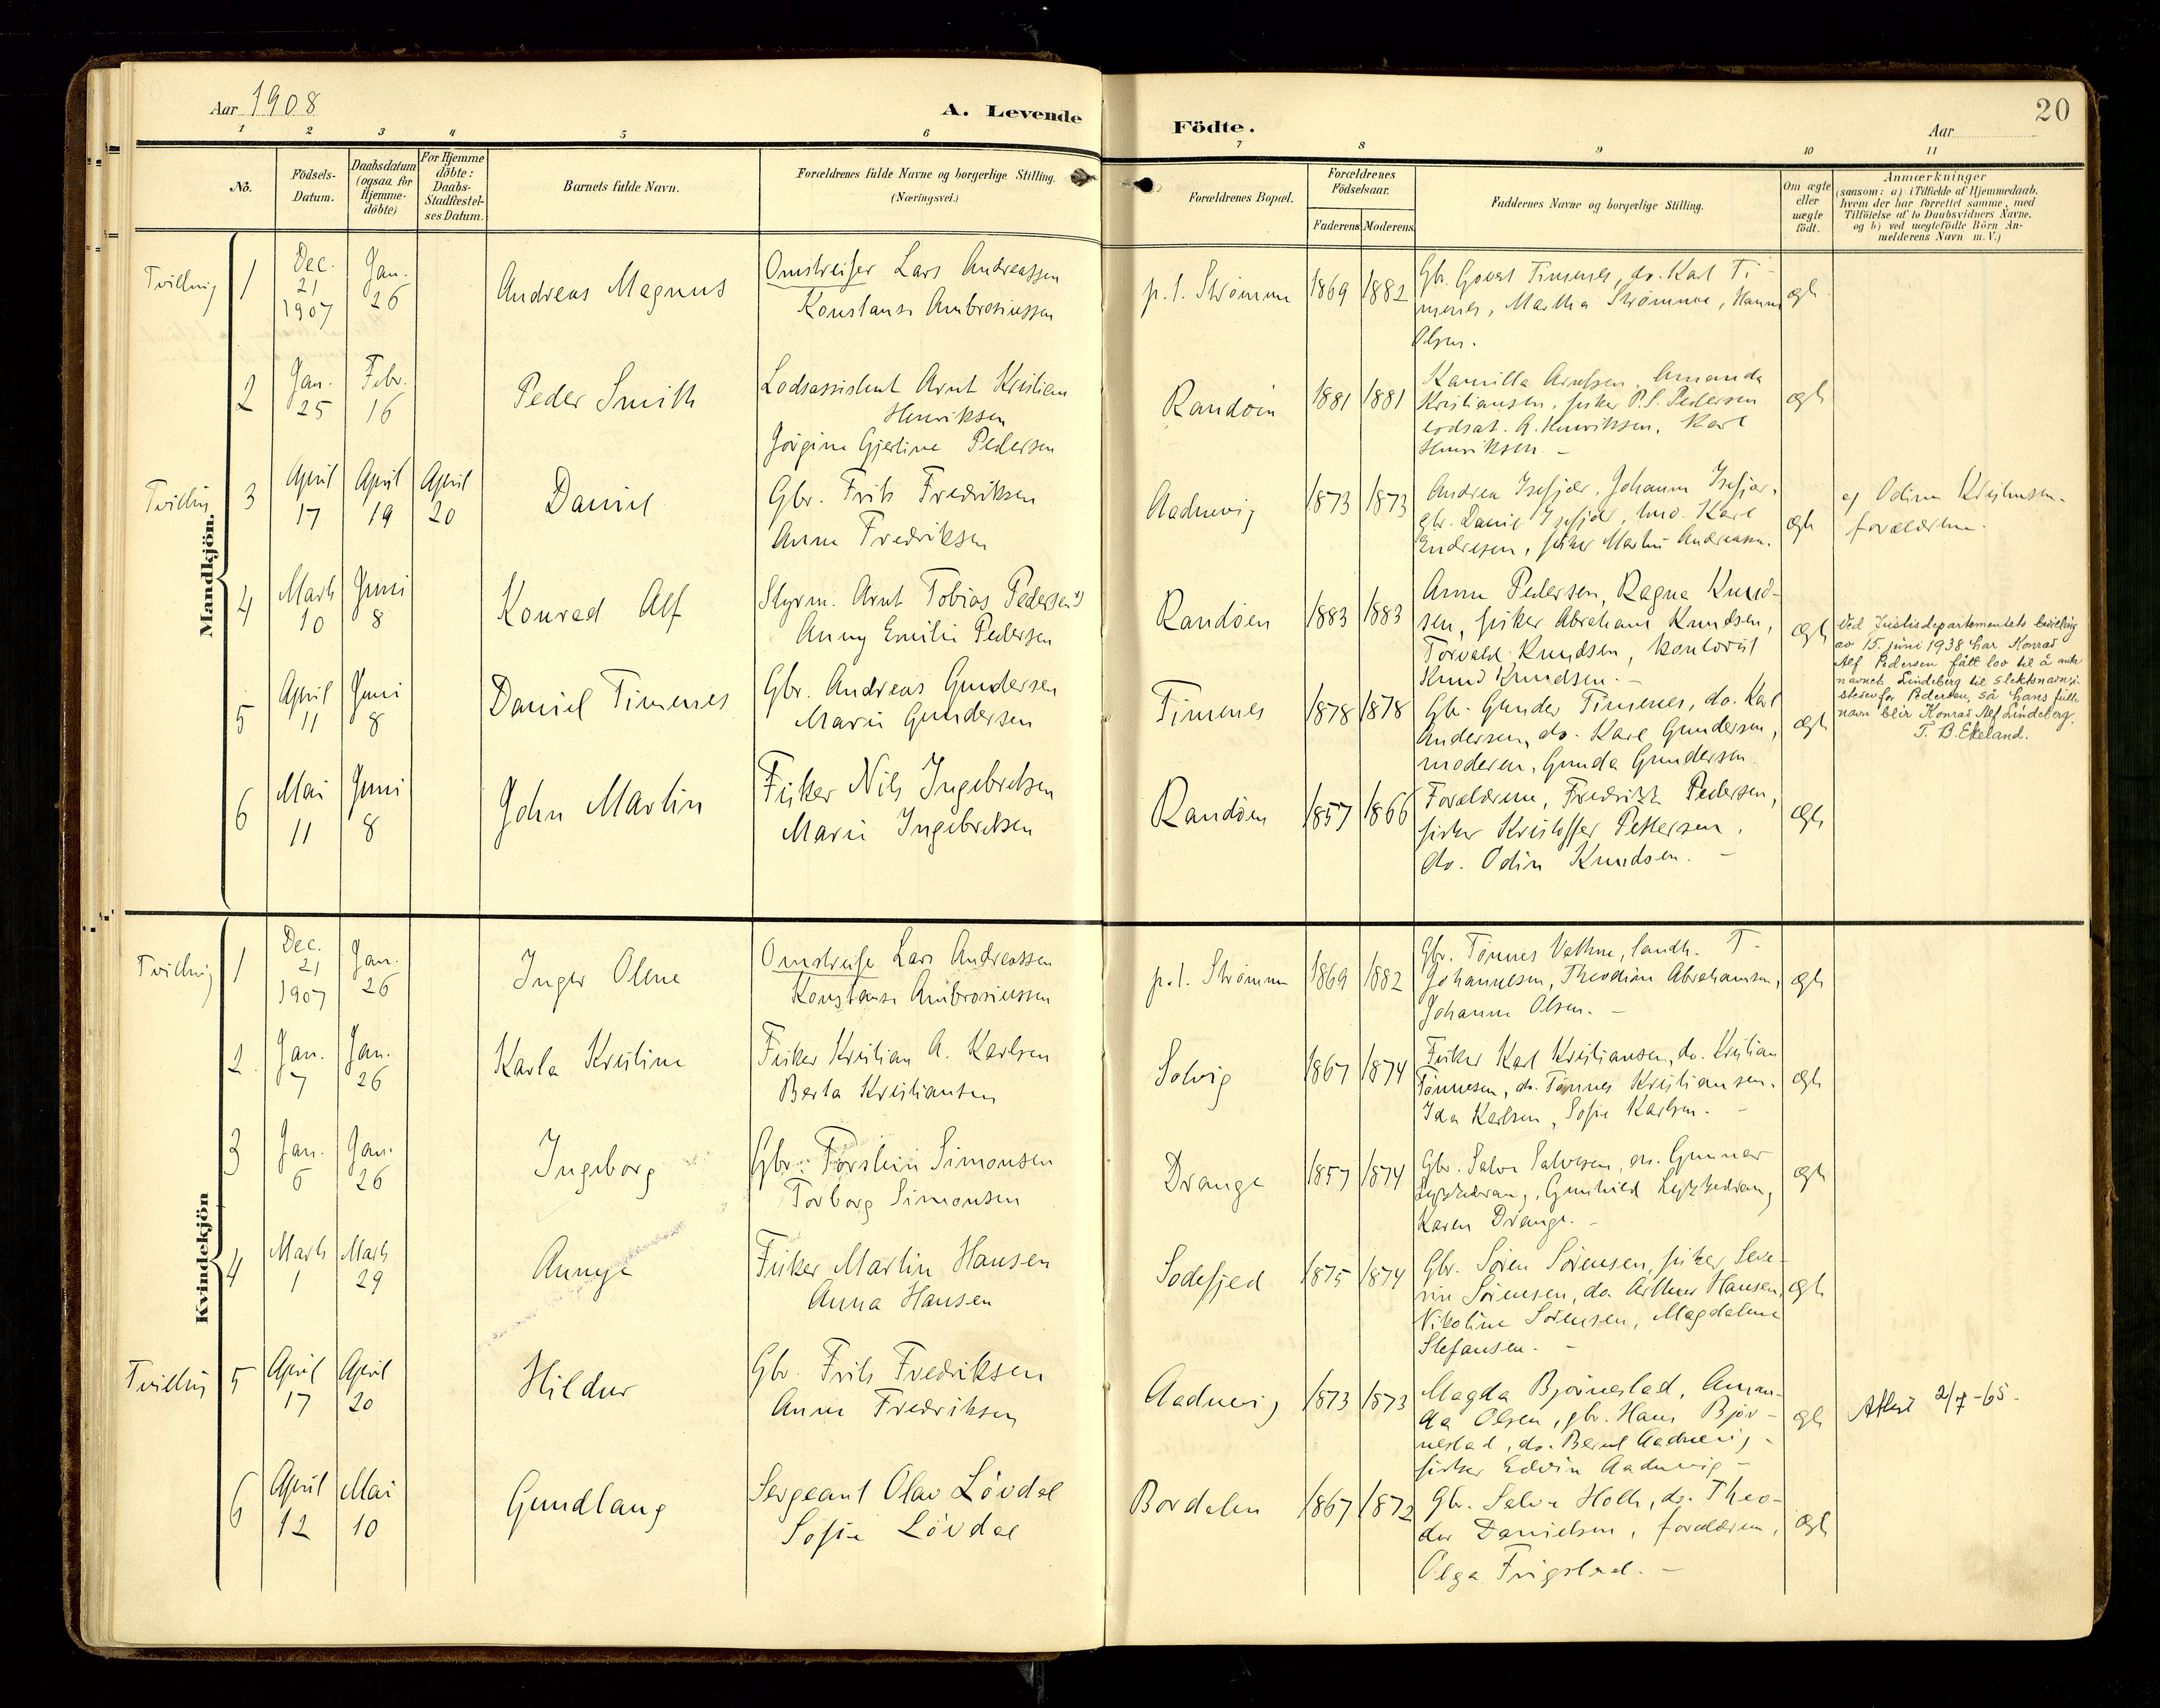 Aar 1908
A. Levende
Födte.
Aar
20
1 2 3 4 5 6 7 8 9 10 11
No.
Födsels-Datum.
Daabsdatum (ogsaa for Hjemme-döbte)
For Hjemme döbte: Daabs-Stadfæstel-ses Datum.
Barnets fulde Navn.
Forældrenes fulde Navne og borgerlige Stilling.
(Næringsvei.)
Forældrenes Bopæl.
Forældrenes Födselsaar.
Faderens Moderens
Faddernes Navne og borgerlige Stilling.
Om ægte eller uægte födt.
Anmærkninger
(saasom: a) i Tilfælde af Hjemmedaab,
hvem der har forrettet samme, med
Tilföielse af to Daabsvidners Navne,
og b) ved uægtefödte Börn An-
melderens Navn m.V.)
Mandkjön.
Tvilling 1
Dec. 21 1907
Jan. 26
Andreas Magnus
Omstreifer Lars Andreassen
Konstanse Ambrosiussen
p.t. Strømme
1869 1882
Gbr. Govert Timenes, do. Karl Ti-
menes, Martha Strømme, Hanna
Olsen.
ægte
2
Jan. 25
Febr. 16
Peder Smith
Lodsassistent Arnt Kristian
Henriksen
Jörgine Gjertine Pedersen
Randöen
1881 1881
Kamilla Arntsen, Amanda
Kristiansen, fisker P.S. Pedersen
lodsat. A. Henriksen, Karl
Henriksen. –
ægte
Tvilling 3
April 17
April 19
April 20
Daniel
Gbr. Frits Fredriksen
Anne Fredriksen
Aadnevig
1873 1873
Andrea Isefjær, Johanne Isefjær,
gbr. Daniel Isefjær, Karl
Endresen, fisker Martin Andreasen.
ægte
a) Odine Kristiansen.
forældrene.
4
Marts 10
Juni 8
Konrad Alf
Styrm. Arnt Tobias Pedersen
Anny Emilie Pedersen
Randöen
1883 1883
Anna Pedersen, Ragna Knud-
sen, fisker Abraham Knudsen,
Torvald Knudsen, kontorist
Knud Knudsen. –
ægte
Ved Justisdepartementets bevilling
av 15. juni 1938 har Konrad
Alf Pedersen fått lov til å anta
navnet Lindeberg til slektsnavn i
stedet for Pedersen, så hans fulle
navn blir Konrad Alf Lindeberg.
T. B. Ekeland.
5
April 11
Juni 8
Daniel Timenes
Gbr. Andreas Gundersen
Marie Gundersen
Timenes
1878 1878
Gbr. Gunder Timenes, do. Karl
Andersen, do. Karl Gundersen,
moderen, Gunda Gundersen.
ægte
6
Mai 11
Juni 8
John Martin
Fisker Nils Ingebretsen
Marie Ingebretsen
Randöen
1857 1866
Forældrene, Fredrikk Pedersen,
fisker Kristoffer Pettersen,
do. Odin Knudsen. –
ægte
Kvindekjön
Tvilling 1
Dec. 21 1907
Jan. 26
Inger Oline
Omstreife Lars Andreassen
Konstanse Ambrosiussen
p.t. Strömme
1869 1882
Gbr. Tönnes Vathne, landh. T.
Johannesen, Theodine Abrahamsen,
Johanne Olsen. –
ægte
2.
Jan. 7
Jan. 26
Karla Kristine
Fisker Kristian A. Karlsen
Berta Kristiansen
Solvig
1867 1874
Fisker Karl Kristiansen, do. Kristian
Tönnesen, do. Tönnes Kristiansen,
Ida Karlsen, Sofie Karlsen. –
ægte
3
Jan. 6
Jan. 26
Ingeborg
Gbr. Torstein Simonsen
Torborg Simonsen
Drange
1857 1874
Gbr. Salve Salvesen, do. Gunnar
Lykkedrang, Gunhild Lykkedrang
Karen Drange. –
ægte
4
Marts 1
Marts 29
Annye
Fisker Martin Hansen
Anna Hansen
Sodefjed
1875 1874
Gbr. Sören Sörensen, fisker Seve-
rin Sörensen, do Arthur Hansen,
Nikoline Sörensen, Magdalene
Stefansen. –
ægte
Tvilling 5
April 17
April 20
Hildur
Gbr. Frits Fredriksen
Anne Fredriksen
Aadnevig
1873 1873
Magda Bjørnestad, Aman-
da Olsen, gbr. Hans Bjør-
nestad, do. Bernt Aadnevig,
fisker Edvin Aadnevig –
ægte
Attest 2/7-65.
6
April 12
Mai 10
Gundlaug
Sergeant Olav Lövdal
Sofie Lövdal
Bordalen
1867 1872
Gbr. Salve Holte, do. Theo-
dor Danielsen, forældrene,
Olga Frigstad. –
ægte